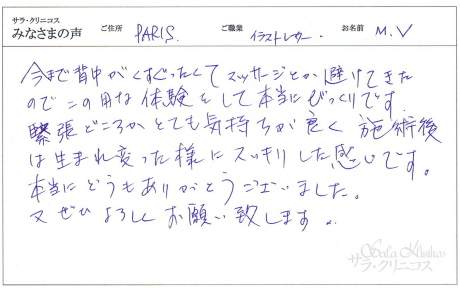 サラ・クリニコス
みなさまの声 ご住所 PARIS. ご職業 イラストレーター. お名前 M.V
今まで背中がくすぐったくてマッサージとか避けてきた
のでこの用な体験をして本当にびっくりです.
緊張どころかとても気持ちが良く 施術後
は生まれ変った様にスッキリした感じです。
本当にどうもありがとうございました。
又ぜひよろしくお願い致します。
サラ・クリニコス